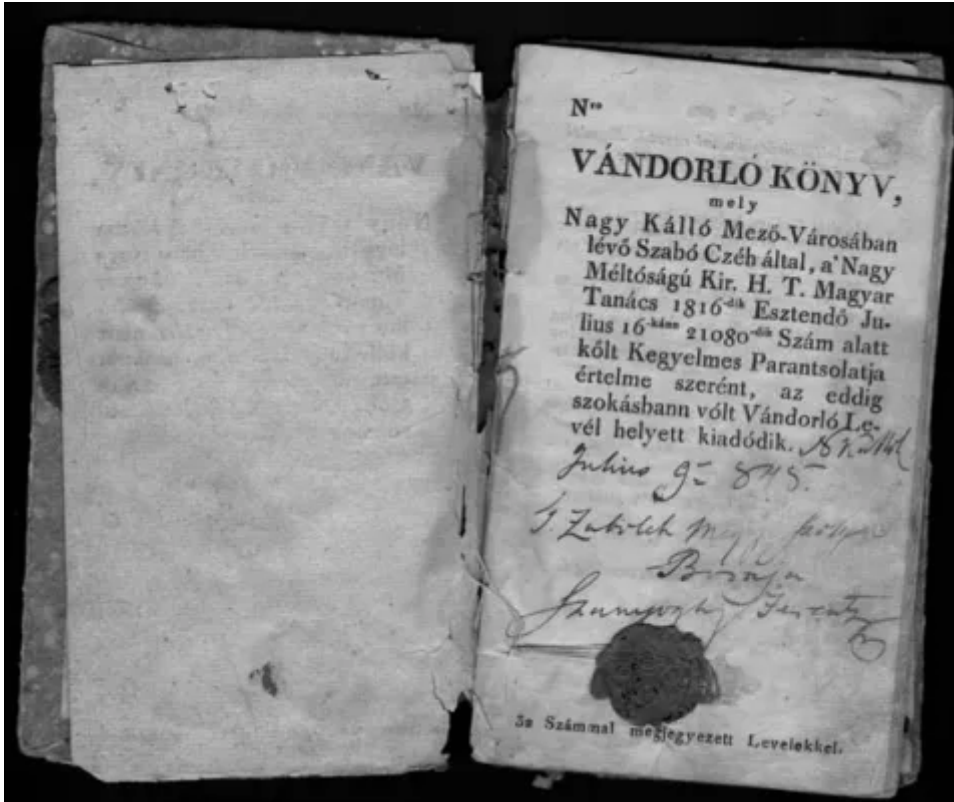 Nro
VÁNDORLÓ KÖNYV,
mely
Nagy Kálló Mező-Városában
lévő Szabó Czéh által, a' Nagy
Méltóságú Kir. H. T. Magyar
Tanács 1816-dik Esztendő Ju-
lius 16-kánn 21080-dik Szám alatt
kőlt Kegyelmes Parantsolatja
értelme szerént, az eddig
szokásbann vólt Vándorló Le-
vél helyett kiadódik. N Kálló
Julius 9= 845.
Bírája
Szunyogh Ferentz
32 Számmal megjegyezett Levelekkel.